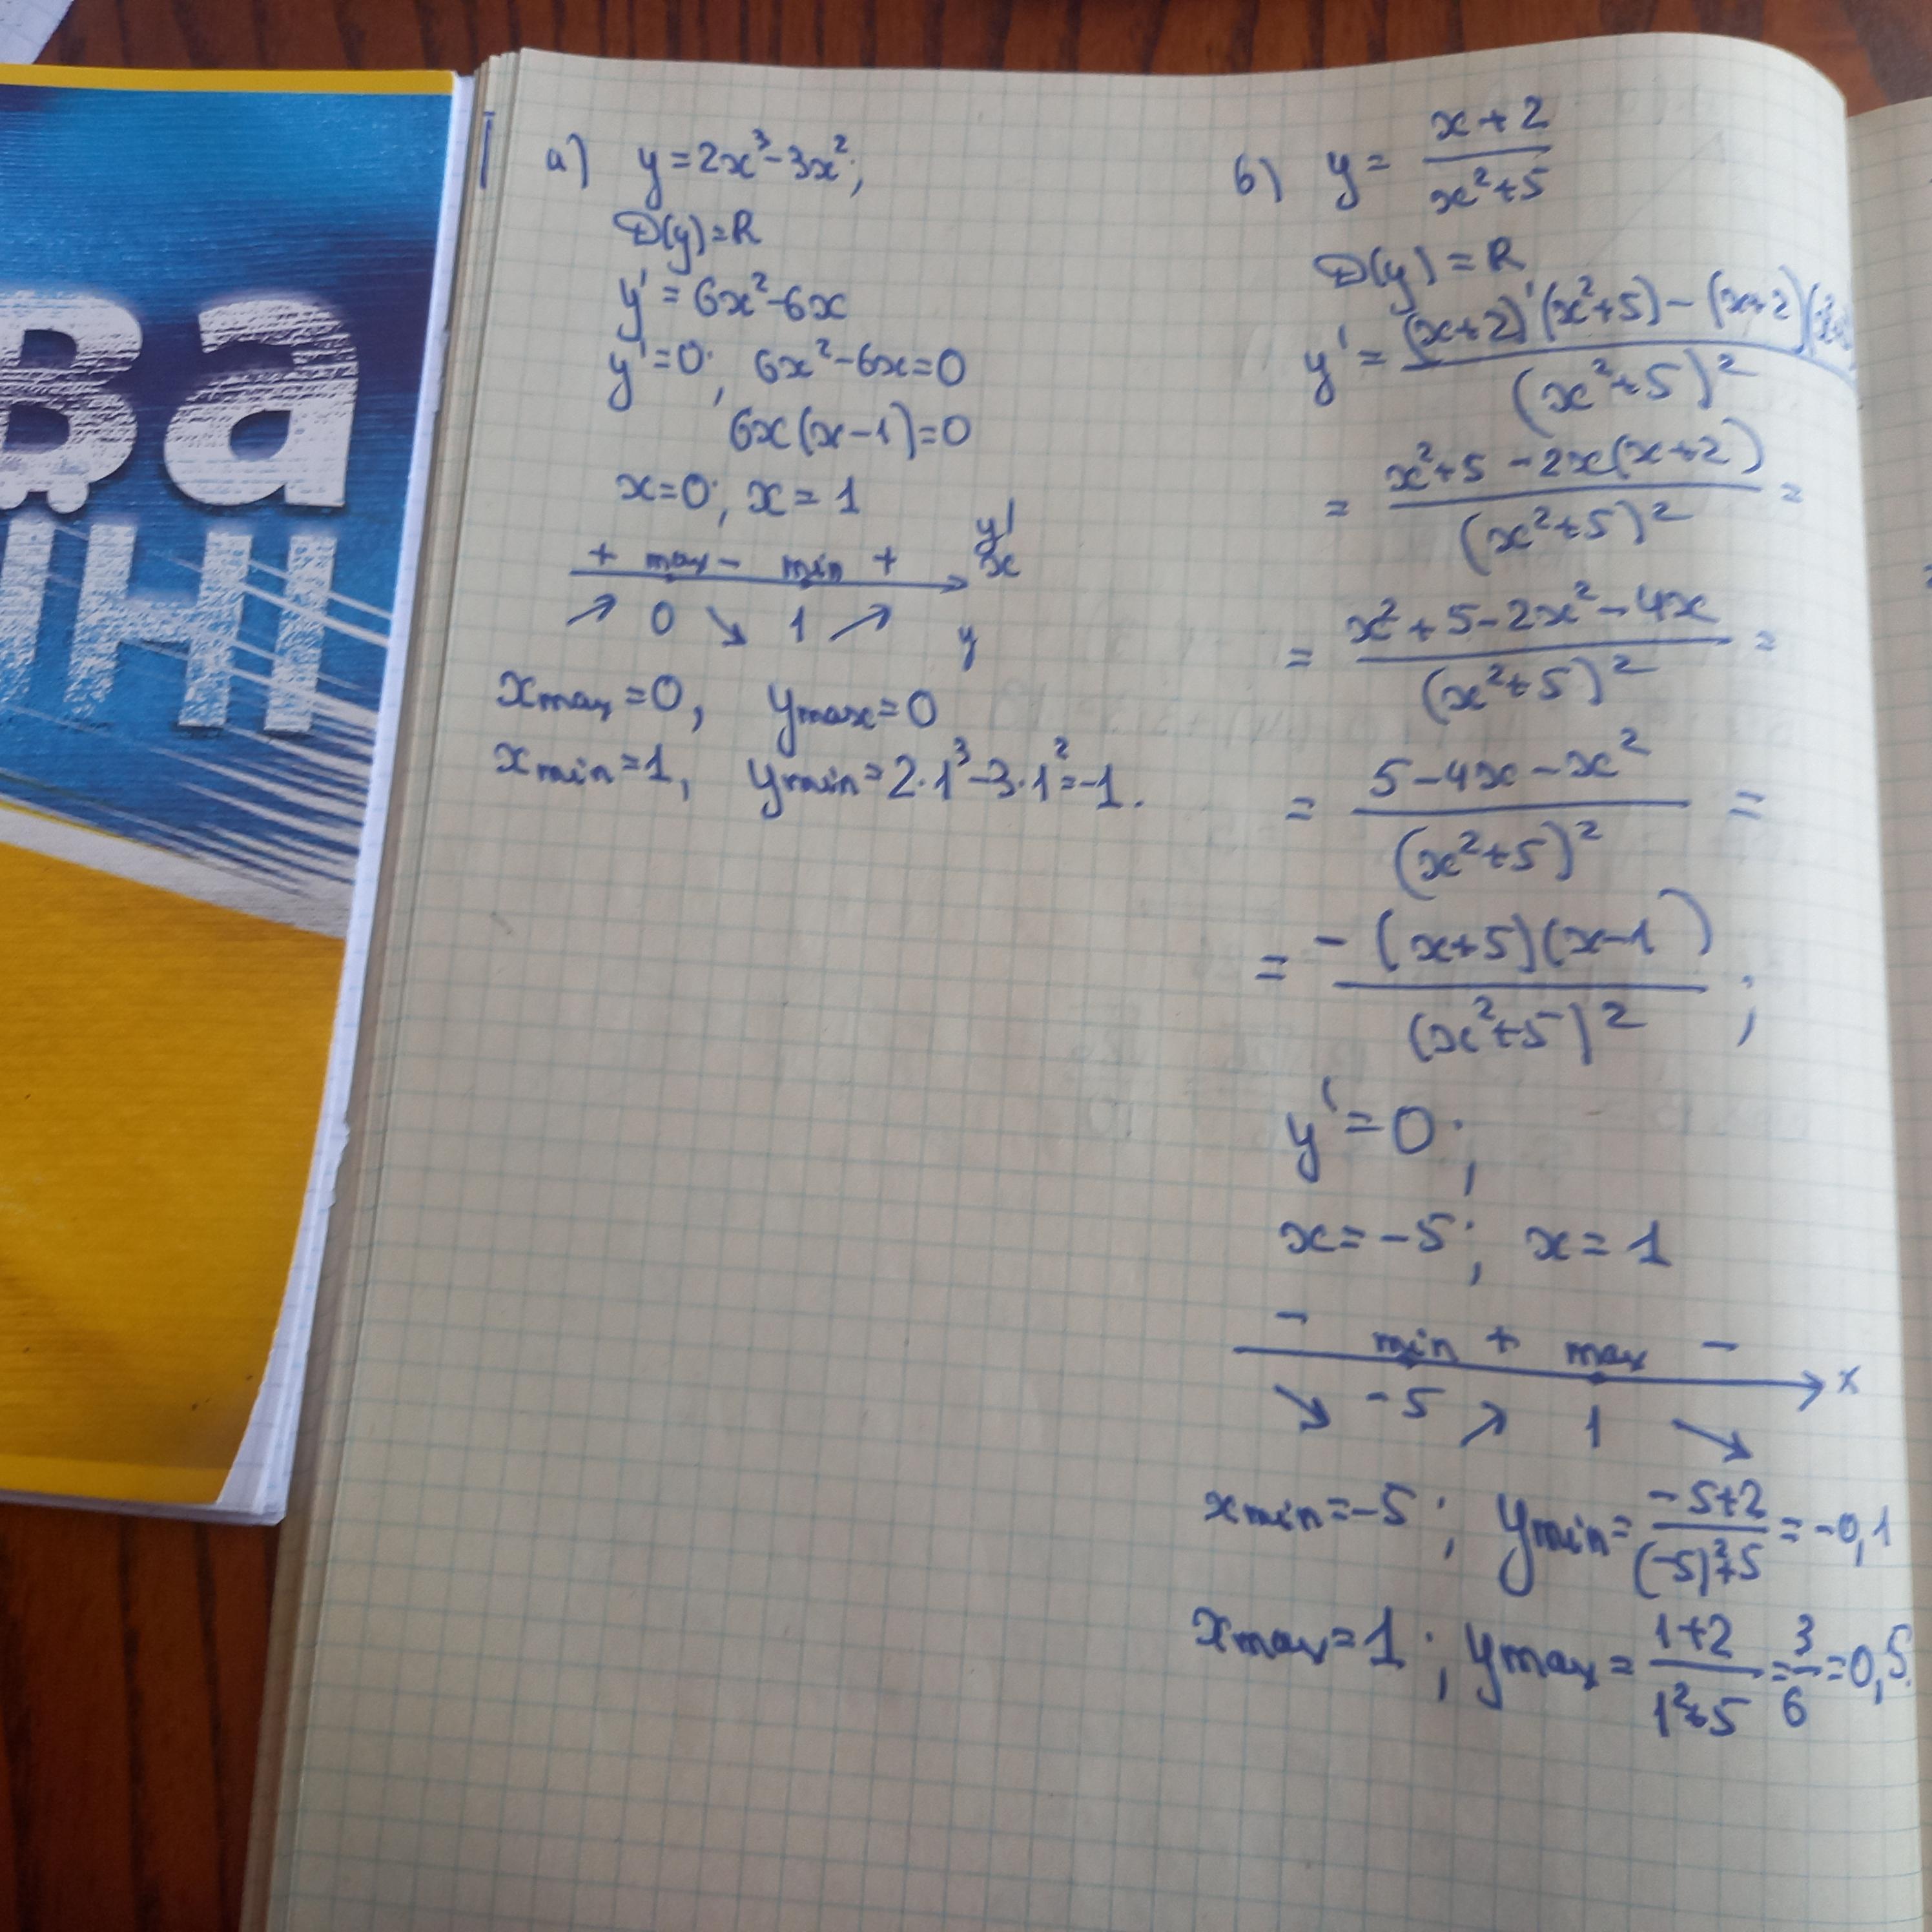 ва
ІНІ
а) y = 2x³ - 3x²;
D(y) = R
y' = 6x² - 6x
y' = 0; 6x² - 6x = 0
6x(x - 1) = 0
x = 0; x = 1
y'
+ max - min + x
↗ 0 ↘ 1 ↗ y
xmax = 0, ymax = 0
xmin = 1, ymin = 2·1³ - 3·1² = -1.
б) y = (x + 2)/(x² + 5)
D(y) = R
y' = ((x+2)'(x²+5) - (x+2)(x²
(x²+5)²
= (x² + 5 - 2x(x+2))/(x²+5)² =
= (x² + 5 - 2x² - 4x)/(x²+5)² =
= (5 - 4x - x²)/(x²+5)² =
= (-(x+5)(x-1))/(x²+5)² ;
y' = 0;
x = -5; x = 1
- min + max - x
↘ -5 ↗ 1 ↘
xmin = -5; ymin = (-5+2)/((-5)²+5) = -0,1
xmax = 1; ymax = (1+2)/(1²+5) = 3/6 = 0,5.